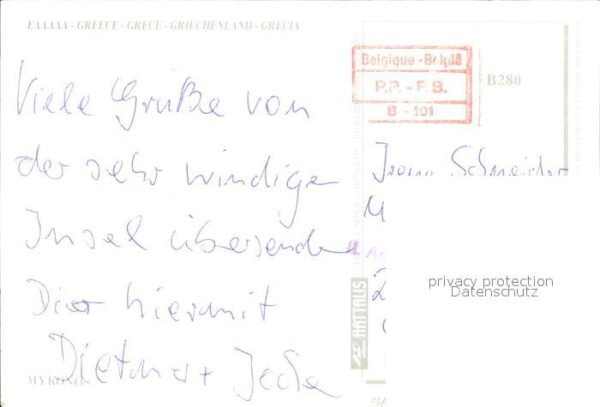 ΕΛΛΑΔΑ - GREECE - GRECE - GRIECHENLAND - GRECIA
Viele Grüße von
der sehr windigen
Insel übersenden
Dir hiermit
Dietmar +
MYKONOS
Belgique - België
P.P. - P.B.
B - 101
B280
Schneider
HAITALIS
privacy protection
Datenschutz